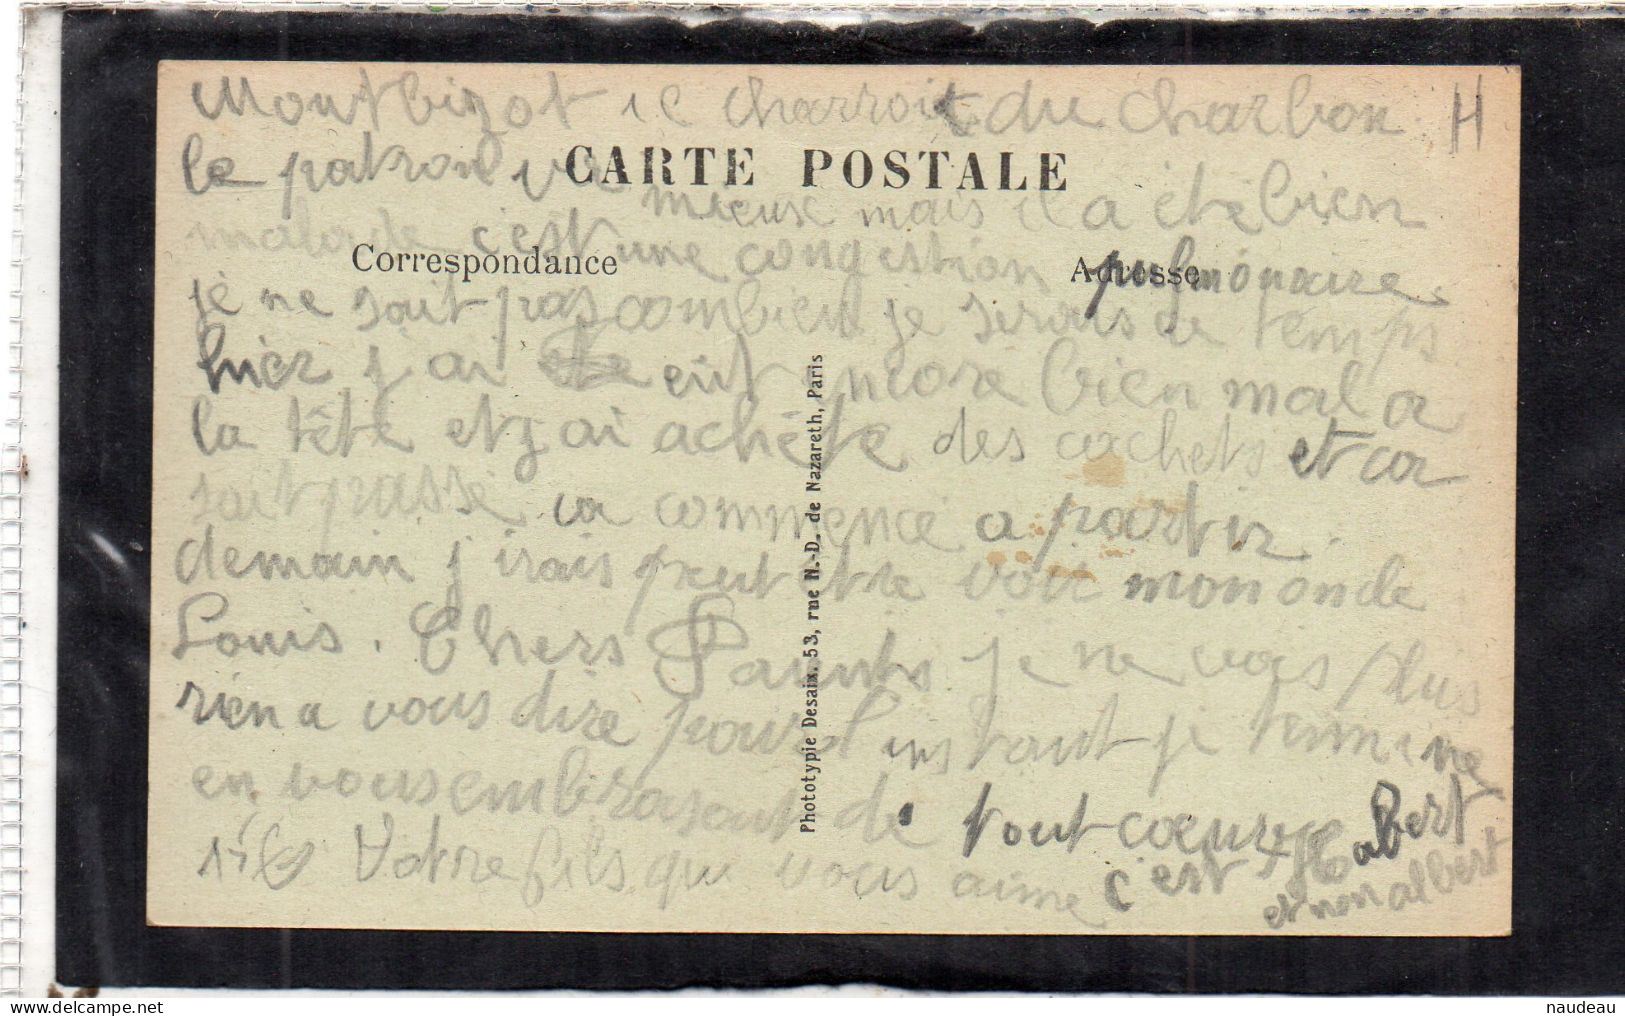 Montbizot ie charroit du charbon. H
le patron va mieux mais il a été bien
CARTE POSTALE
malade c'est une congestion pulmonaire.
Correspondance
Adresse
je ne sait pas combien je serais de temps
hier j ai eüt encore bien mal a
la tête et j ai achéte des cachets et ca
sait passé ca commence a partir.
demain j irais peut etre voir mon oncle
Louis. Chers Parents je ne vois plus
rien a vous dire pour l instant je termine
en vous embrasant de tout cœur
Votre fils qui vous aime Habert
c'est Habert
et non albert
Phototypie Desaix. 53, rue N.-D. de Nazareth, Paris
naudeau